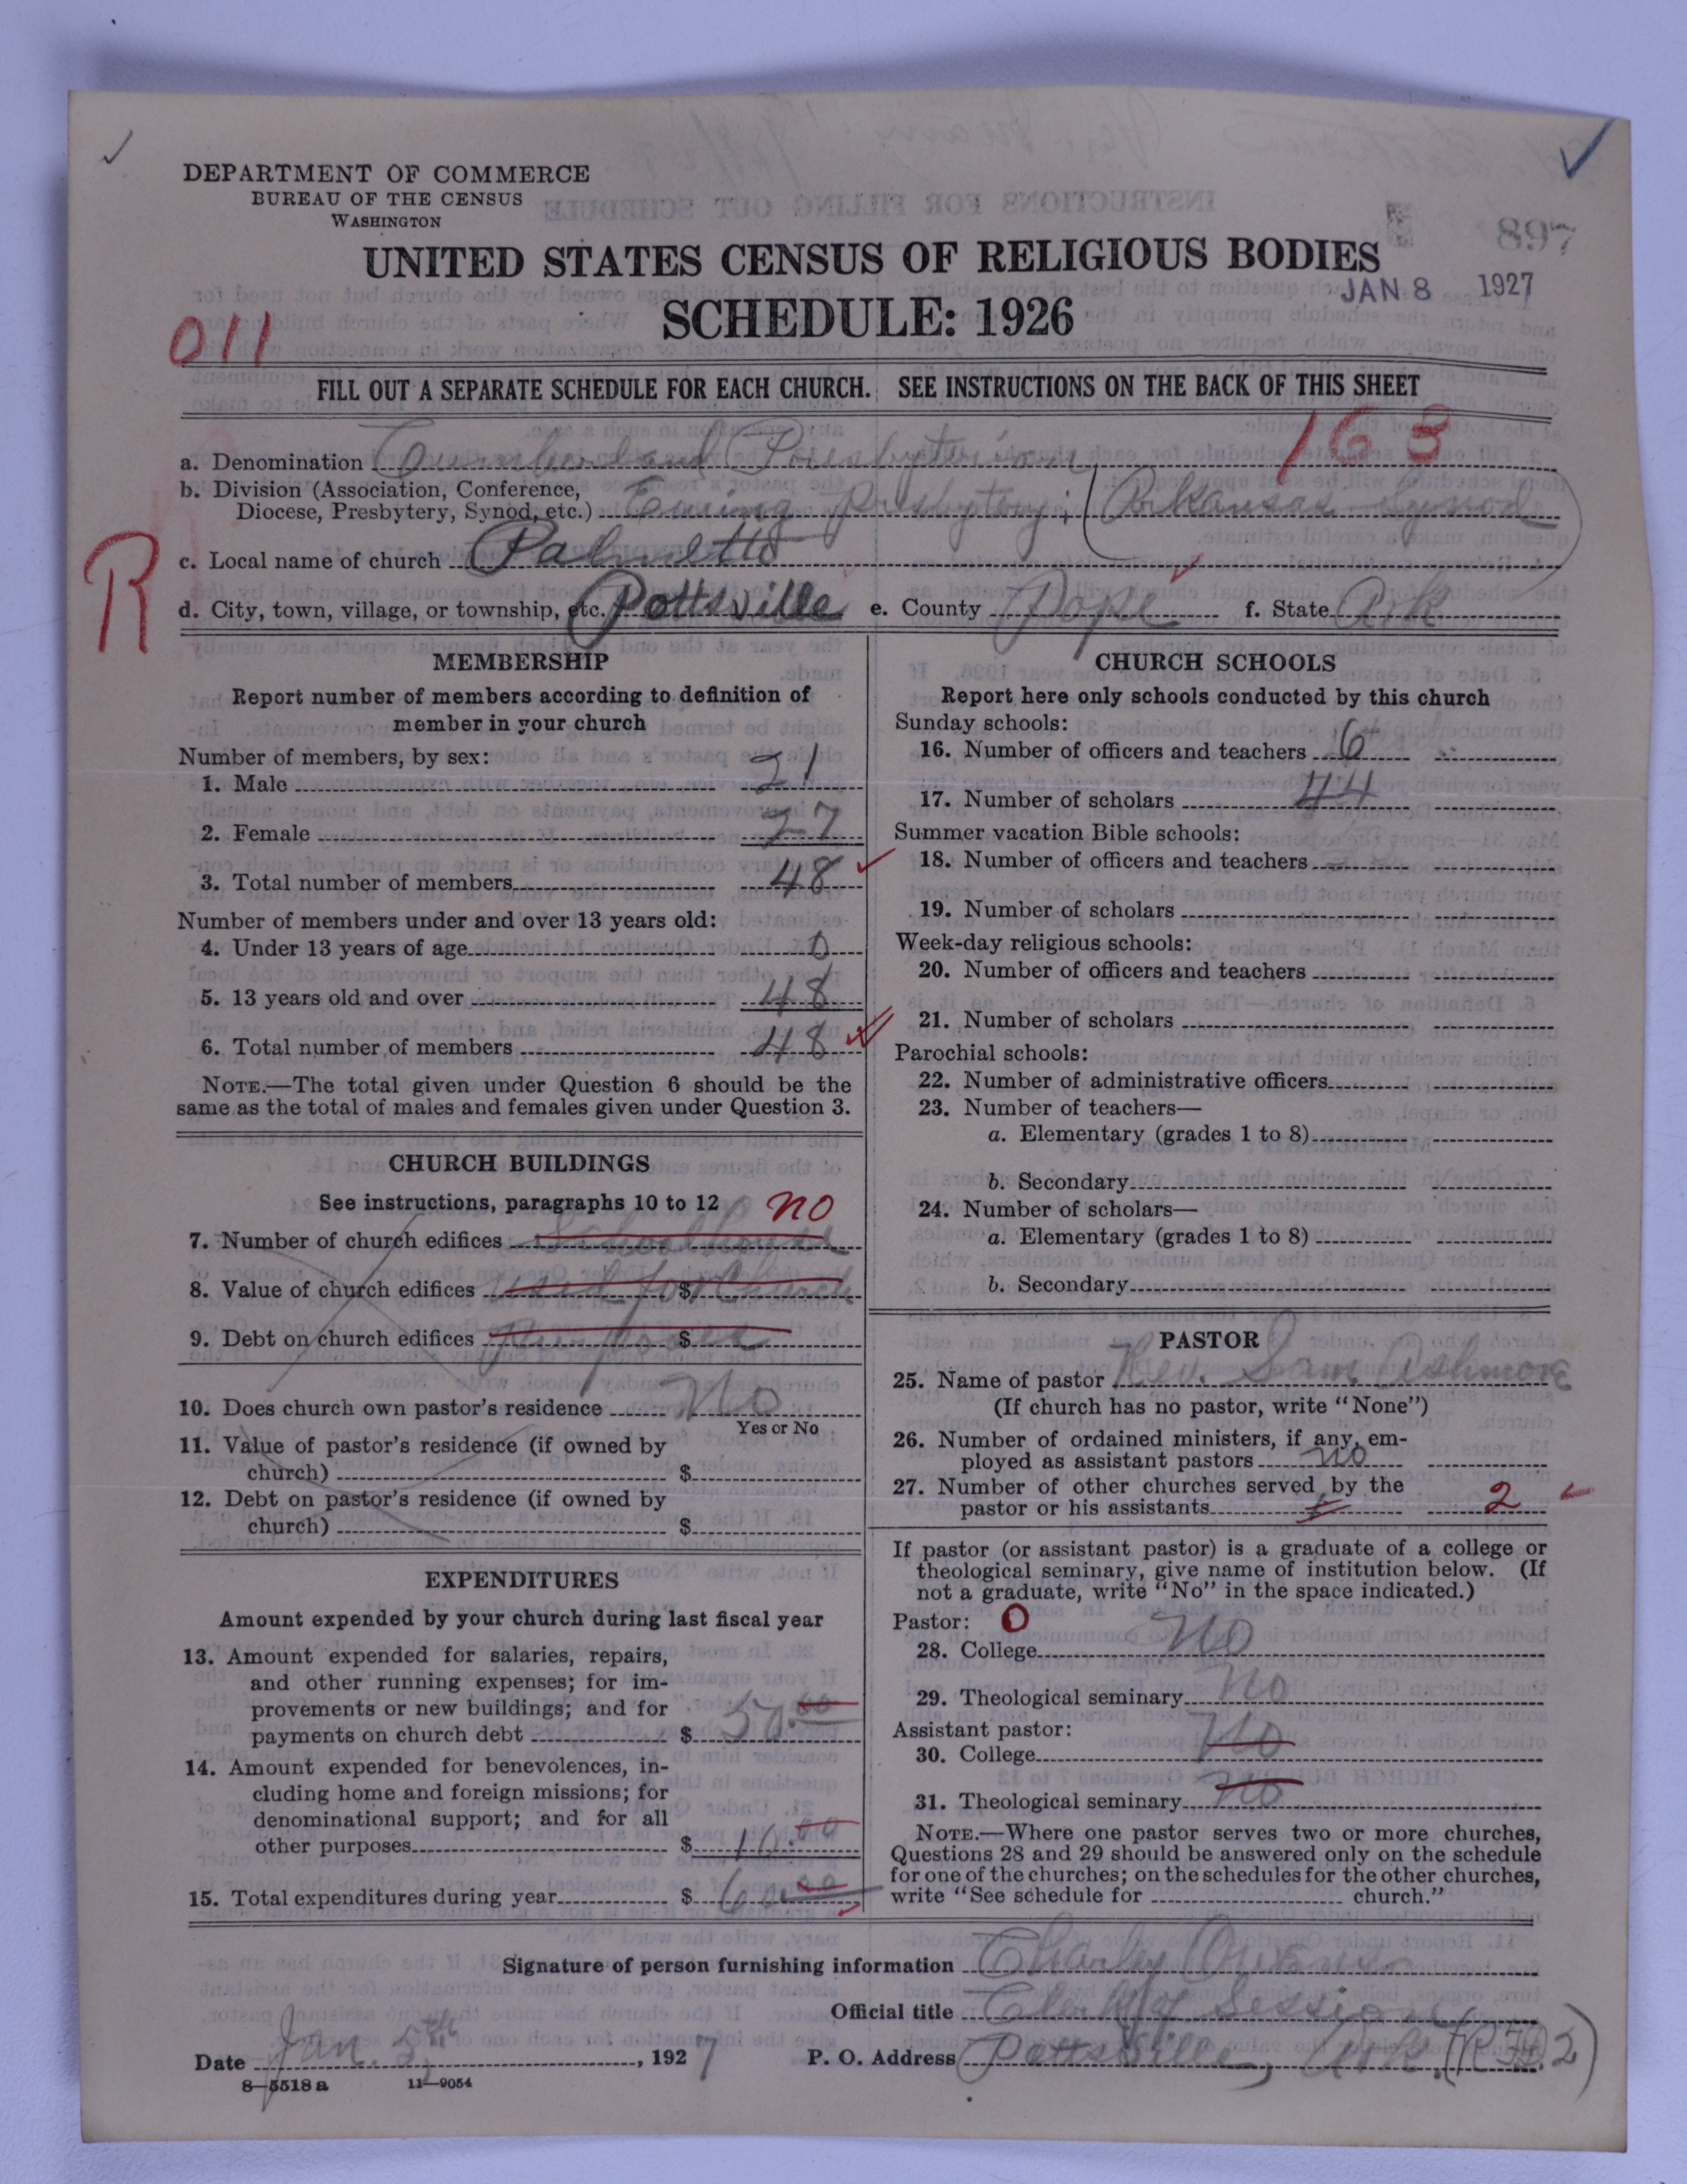 DEPARTMENT OF COMMERCE
BUREAU OF THE CENSUS
WASHINGTON
897
UNITED STATES CENSUS OF RELIGIOUS BODIES
JAN 8 1927
SCHEDULE: 1926
011
FILL OUT A SEPARATE SCHEDULE FOR EACH CHURCH. SEE INSTRUCTIONS ON THE BACK OF THIS SHEET
163
a. Denomination Cumberland Presbyterian
b. Division (Association, Conference,
Diocese, Presbytery, Synod, etc.) Ewing Presbytery; (Arkansas Synod)
R
c. Local name of church Palmetto
d. City, town, village, or township, etc. Pottsville e. County Pope f. State Ark
MEMBERSHIP
Report number of members according to definition of
member in your church
Number of members, by sex:
1. Male 21
2. Female 27
3. Total number of members 48
Number of members under and over 13 years old:
4. Under 13 years of age 0
5. 13 years old and over 48
6. Total number of members 48
NOTE.—The total given under Question 6 should be the
same as the total of males and females given under Question 3.
CHURCH BUILDINGS
See instructions, paragraphs 10 to 12 no
7. Number of church edifices Schoolhouse
8. Value of church edifices used for Church $
9. Debt on church edifices purposes $
10. Does church own pastor's residence No
Yes or No
11. Value of pastor's residence (if owned by
church) $
12. Debt on pastor's residence (if owned by
church) $
EXPENDITURES
Amount expended by your church during last fiscal year
13. Amount expended for salaries, repairs,
and other running expenses; for im-
provements or new buildings; and for
payments on church debt $ 50.00
14. Amount expended for benevolences, in-
cluding home and foreign missions; for
denominational support; and for all
other purposes $ 10.00
15. Total expenditures during year $ 60.00
CHURCH SCHOOLS
Report here only schools conducted by this church
Sunday schools:
16. Number of officers and teachers 6
17. Number of scholars 44
Summer vacation Bible schools:
18. Number of officers and teachers
19. Number of scholars
Week-day religious schools:
20. Number of officers and teachers
21. Number of scholars
Parochial schools:
22. Number of administrative officers
23. Number of teachers—
a. Elementary (grades 1 to 8)
b. Secondary
24. Number of scholars—
a. Elementary (grades 1 to 8)
b. Secondary
PASTOR
25. Name of pastor Rev. Sam Ashmore
(If church has no pastor, write "None")
26. Number of ordained ministers, if any, em-
ployed as assistant pastors no
27. Number of other churches served by the
pastor or his assistants 2
If pastor (or assistant pastor) is a graduate of a college or
theological seminary, give name of institution below. (If
not a graduate, write "No" in the space indicated.)
Pastor: O
28. College No
29. Theological seminary No
Assistant pastor:
30. College No
31. Theological seminary No
NOTE.—Where one pastor serves two or more churches,
Questions 28 and 29 should be answered only on the schedule
for one of the churches; on the schedules for the other churches,
write "See schedule for church."
Signature of person furnishing information Charley Owens
Official title Clerk of Session
Date Jan. 5th, 1927 P. O. Address Pottsville, Ark. (R.F.D. 2)
8—5518 a 11—9054